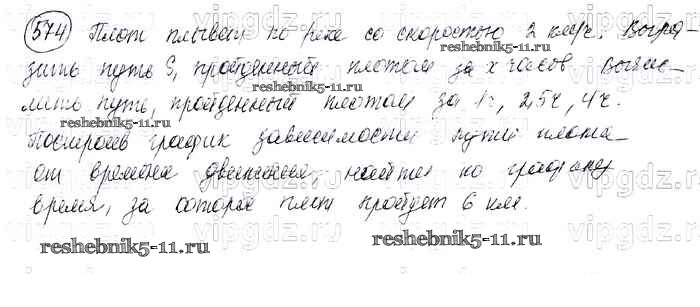 574 Плот плывет по реке со скоростью 2 км/ч. Выра-
reshebnik5-11.ru
зить путь S, пройденный плотом за x часов. Вычис-
лить путь, пройденный плотом за 1ч, 2,5ч, 4ч.
reshebnik5-11.ru
Построив график зависимости пути плота
от времени движения, найти по графику
время, за которое плот пройдет 6 км.
reshebnik5-11.ru reshebnik5-11.ru
vipgdz.ru